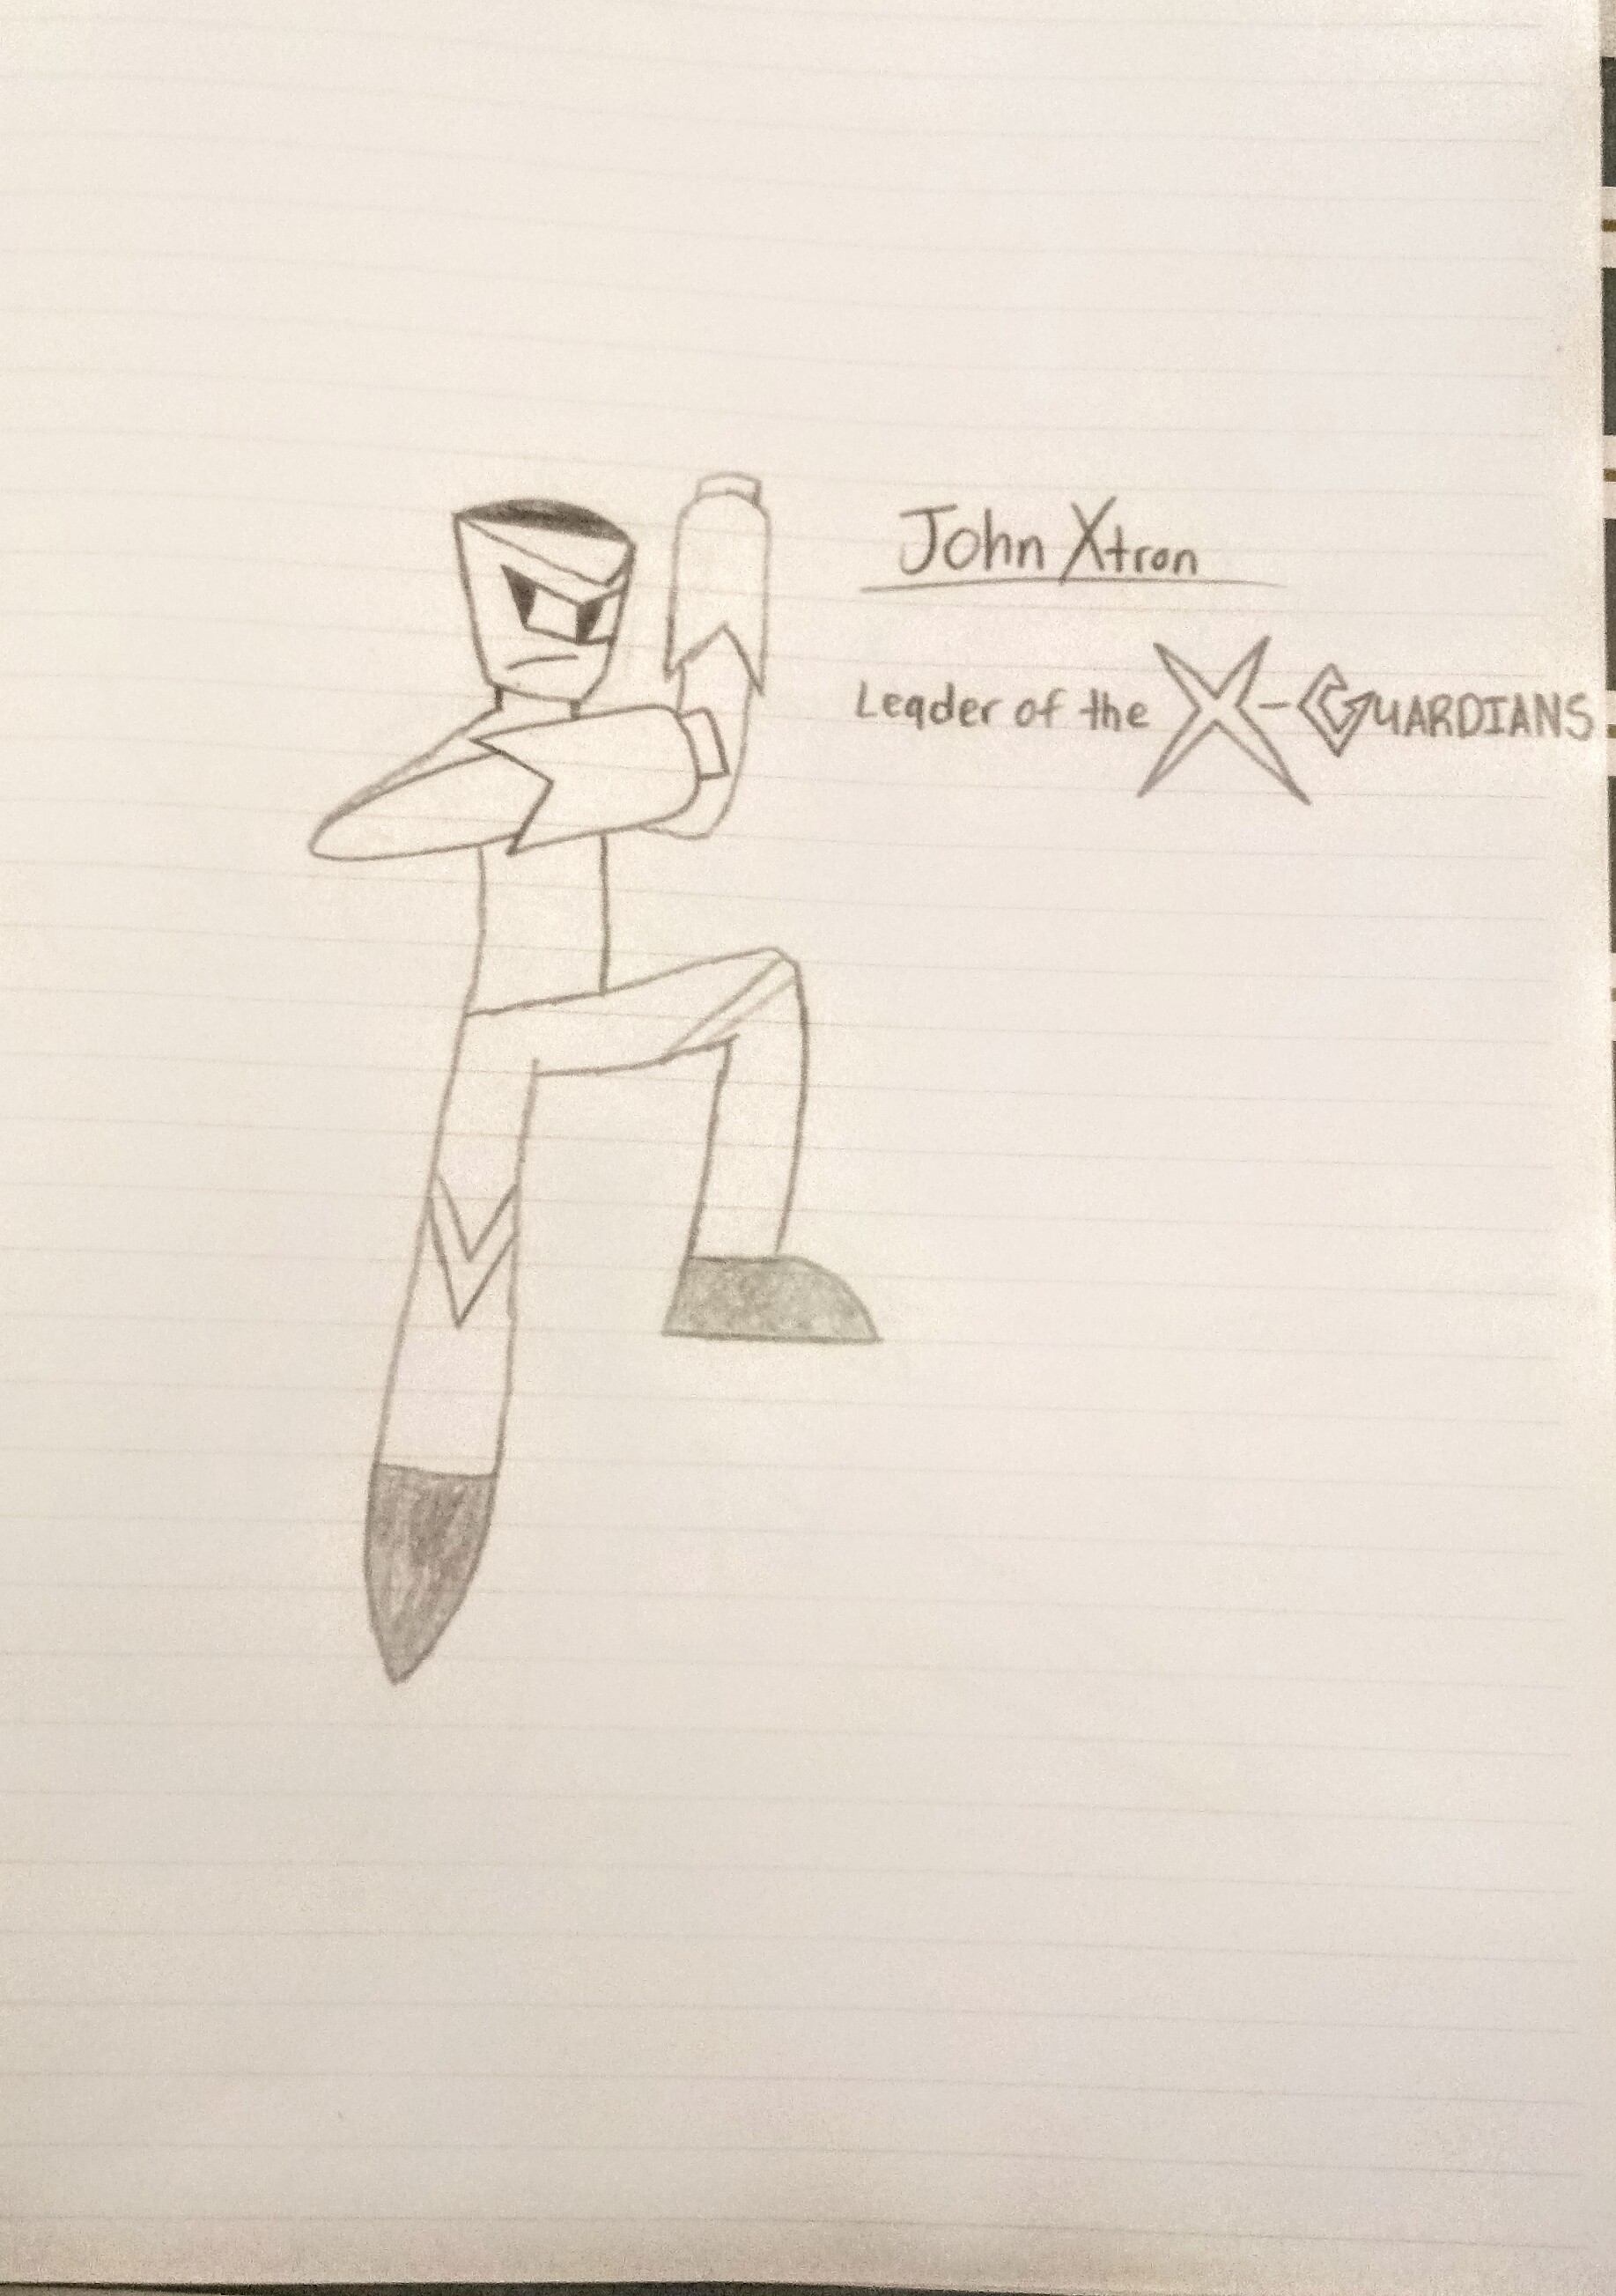 John Xtron
Leader of the X-GUARDIANS